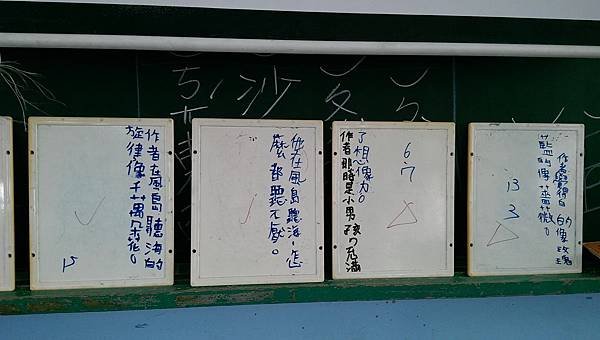 沙
作者在風島聽海的
旋律像千萬朵花。
15
他在風島聽海,怎
麼都聽不厭。
作者那時是小男孩,充滿
了想像力。
6
7
作者覺得白的像玫瑰
藍的像薔薇。
13
3